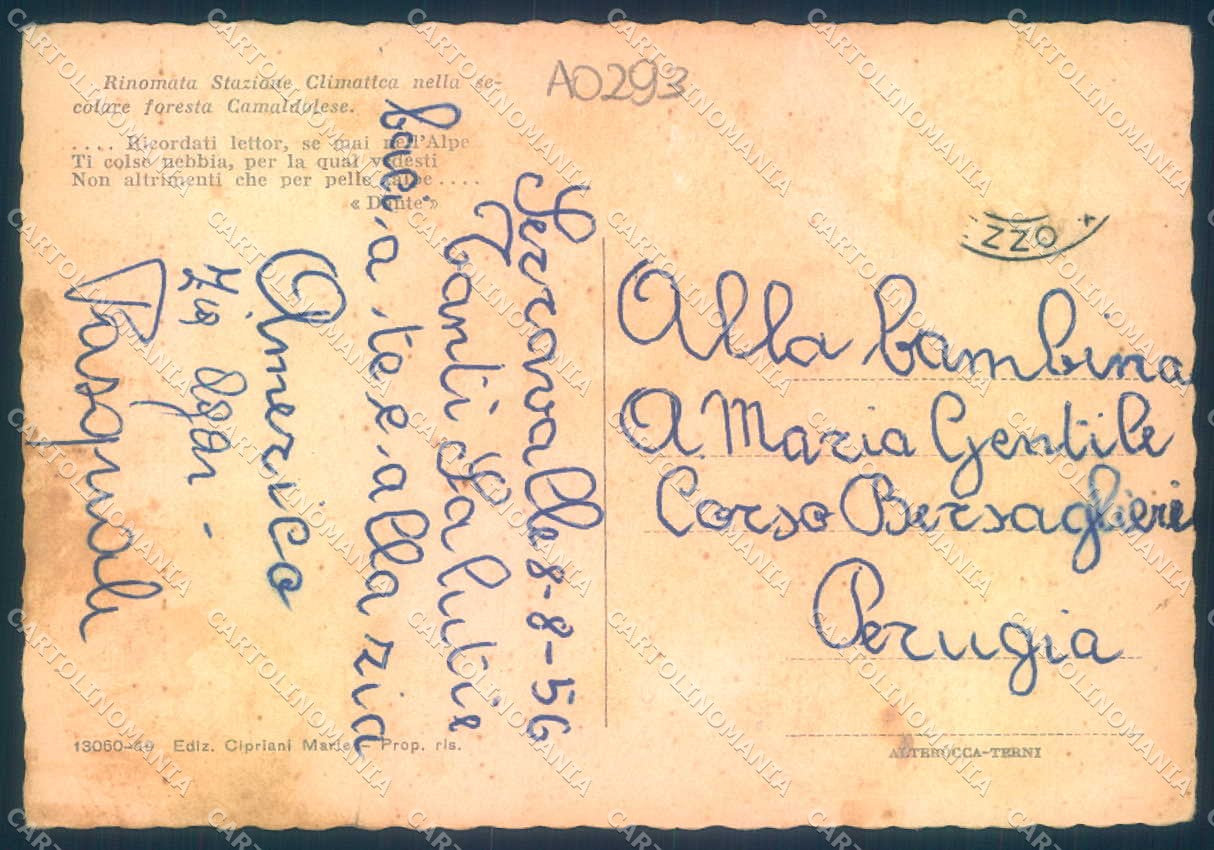 Rinomata Stazione Climatica nella se-
colare foresta Camaldolese.
.... Ricordati lettor, se mai nell'Alpe
Ti colse nebbia, per la qual vedesti
Non altrimenti che per pelle talpe ....
« Dante »
A0293
Serravalle 8-8-56
Tanti saluti e
baci a te e alla zia
Americo
Zia
Pasquale
ZZO
Alla bambina
A. Maria Gentile
Corso Bersaglieri
Perugia
13060-49 Ediz. Cipriani Maria - Prop. ris.
ALTEROCCA-TERNI
CARTOLINOMANIA